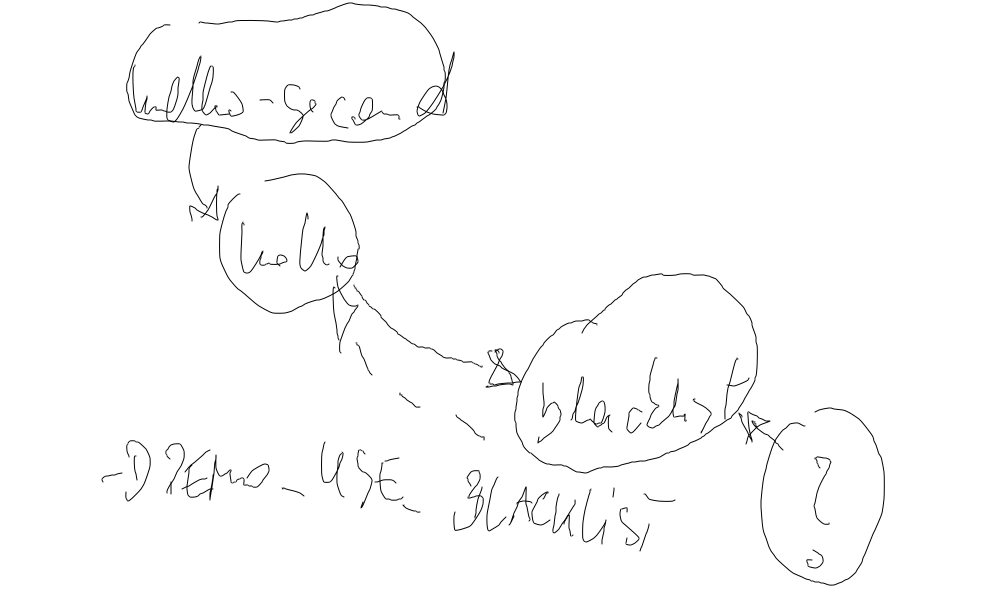 hello-second
hello
blacklist
?
-DDEMO_USE_BLACKLIST